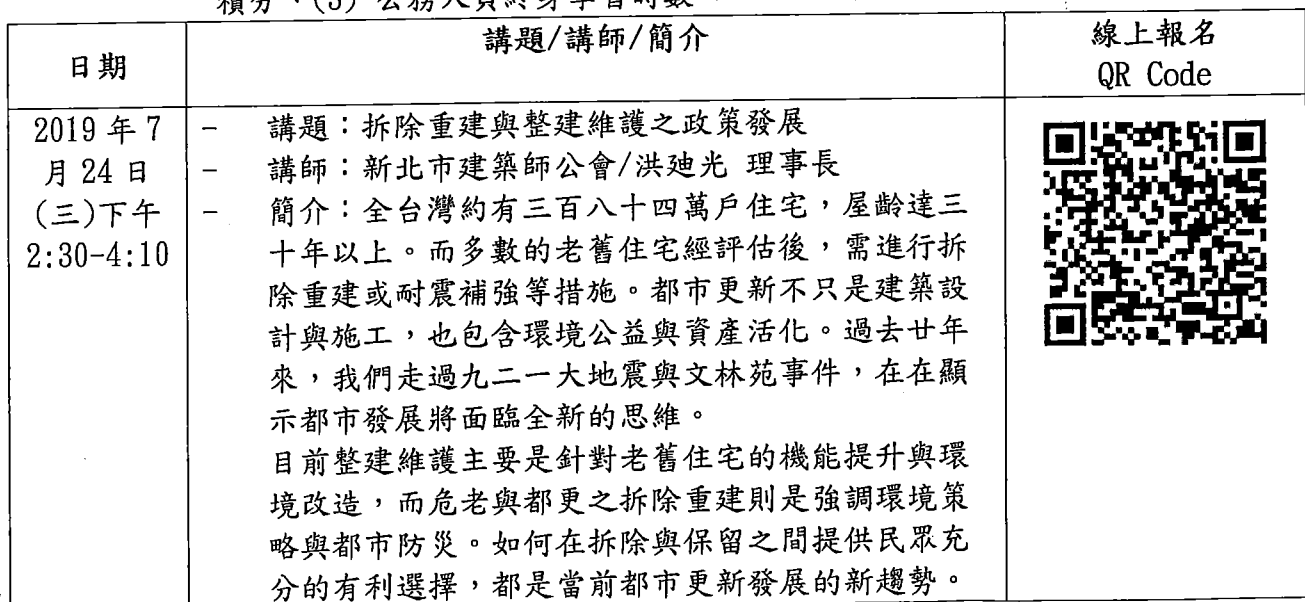 積分、(3) 公務人員終身學習時數
日期
講題/講師/簡介
線上報名
QR Code
2019 年 7
月 24 日
(三)下午
2:30-4:10
- 講題：拆除重建與整建維護之政策發展
- 講師：新北市建築師公會/洪廸光 理事長
- 簡介：全台灣約有三百八十四萬戶住宅，屋齡達三
十年以上。而多數的老舊住宅經評估後，需進行拆
除重建或耐震補強等措施。都市更新不只是建築設
計與施工，也包含環境公益與資產活化。過去廿年
來，我們走過九二一大地震與文林苑事件，在在顯
示都市發展將面臨全新的思維。
目前整建維護主要是針對老舊住宅的機能提升與環
境改造，而危老與都更之拆除重建則是強調環境策
略與都市防災。如何在拆除與保留之間提供民眾充
分的有利選擇，都是當前都市更新發展的新趨勢。